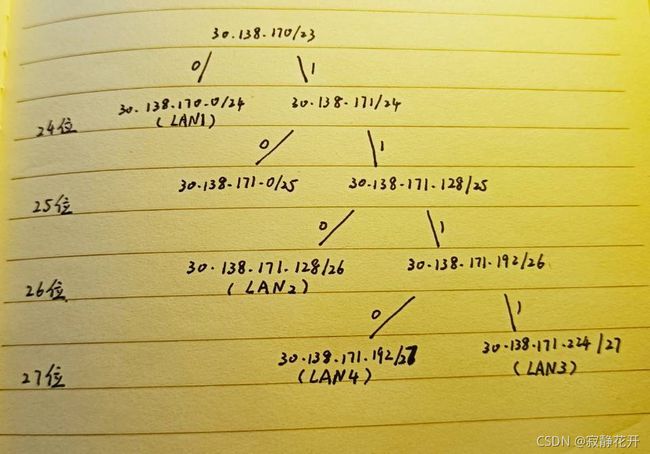 30.138.170/23
0 1
30.138.170.0/24 30.138.171/24
(LAN1)
24位
0 1
30.138.171.0/25 30.138.171.128/25
25位
0 1
30.138.171.128/26 30.138.171.192/26
(LAN2)
26位
0 1
30.138.171.192/27 30.138.171.224/27
(LAN4) (LAN3)
27位
CSDN @寂静花开